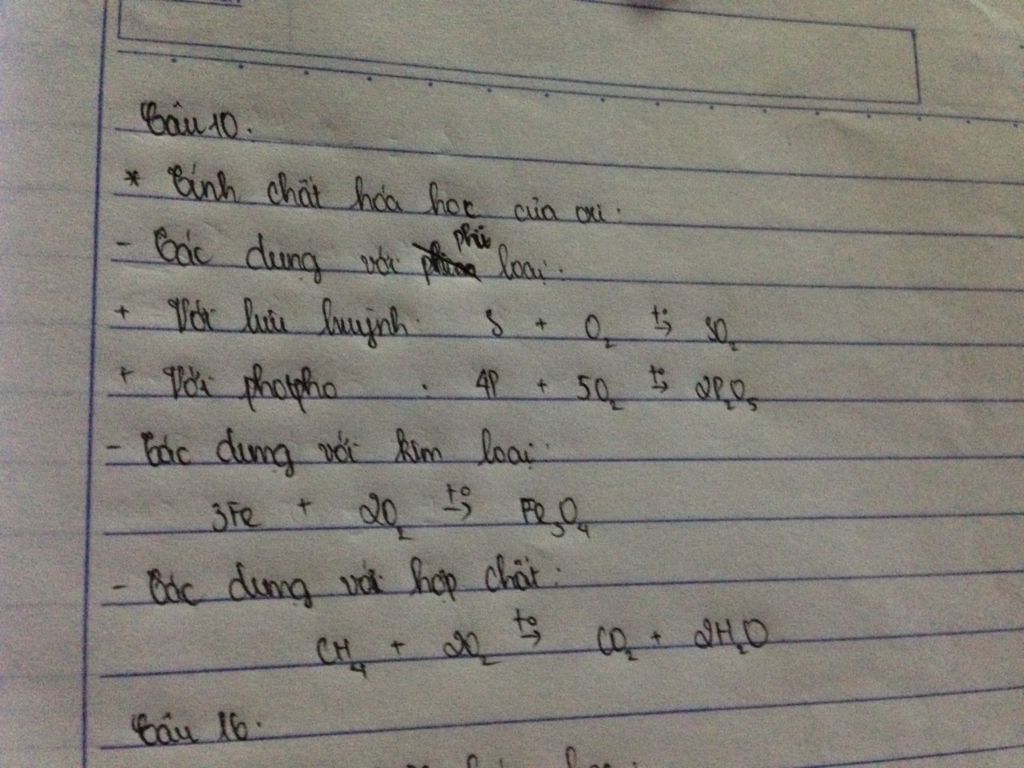 Câu 10.
* Tính chất hóa học của oxi:
- Tác dụng với phi loại:
+ Với lưu huỳnh: S + O₂ t°→ SO₂
+ Với photpho : 4P + 5O₂ t°→ 2P₂O₅
- Tác dụng với kim loại:
3Fe + 2O₂ t°→ Fe₃O₄
- Tác dụng với hợp chất:
CH₄ + 2O₂ t°→ CO₂ + 2H₂O
Câu 16.